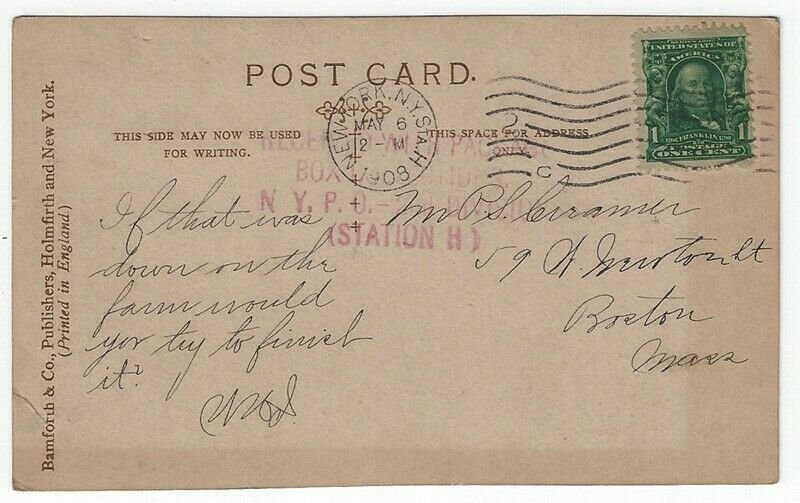 POST CARD.
THIS SIDE MAY NOW BE USED
FOR WRITING.
THIS SPACE FOR ADDRESS
ONLY.
NEW YORK, N.Y. STA. H
MAY 6
2 - M
1908
UNITED STATES OF
AMERICA
1 FRANKLIN 1
POSTAGE
ONE CENT
BOX
N. Y. P. O. -
(STATION H)
If that was
down on the
farm would
you try to finish
it?
Mr P. S. Cramer
59 W. Newton St
Boston
Mass
Bamforth & Co., Publishers, Holmfirth and New York.
(Printed in England)